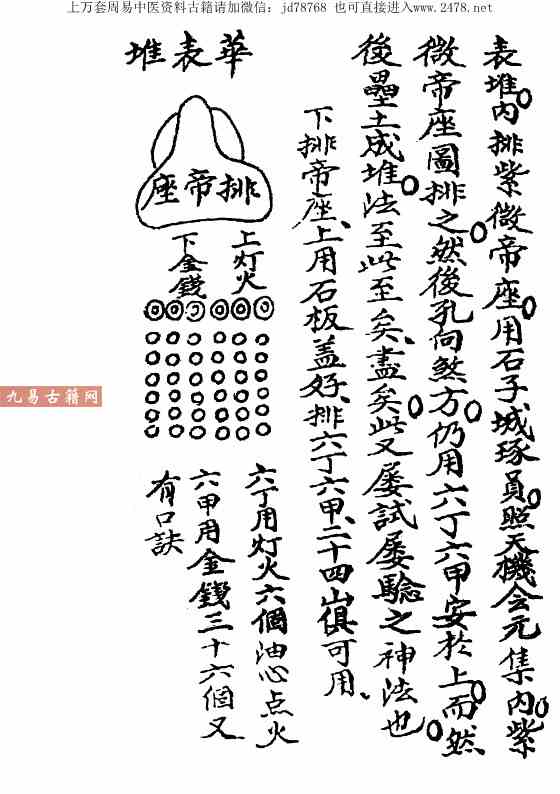 上万套周易中医资料古籍请加微信：jd78768 也可直接进入www.2478.net
表堆内排紫微帝座用石子城琢員照天機会元集内紫
微帝座圖排之然後孔向煞方仍用六丁六甲安於上而然
後壘土成堆法至此至矣盡矣此又屡試屡驗之神法也
下排帝座上用石板盖好排六丁六甲二十四山俱可用
華表堆
排帝座
上灯火
下金錢
六丁用灯火六個油心点火
六甲用金錢三十六個又
有口訣
九易古籍网